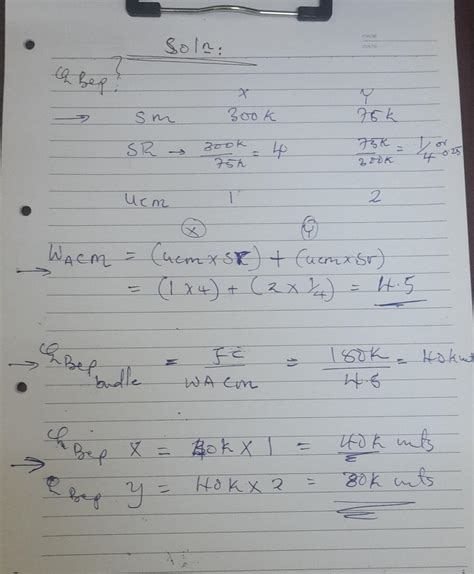 Soln:
Q Bep?
X Y
→ Sm 300k 75k
SR → 300k/75k = 4 75k/300k = 1/4 or 0.25
ucm 1 2
X Y
→ WACM = (ucm x SR) + (ucm x Sr)
= (1 x 4) + (2 x 1/4) = 4.5
→ Q Bep bundle = FC/WACM = 180k/4.5 = 40k unt
→ Q Bep X = 40k x 1 = 40k unts
Q Bep Y = 40k x 2 = 80k unts